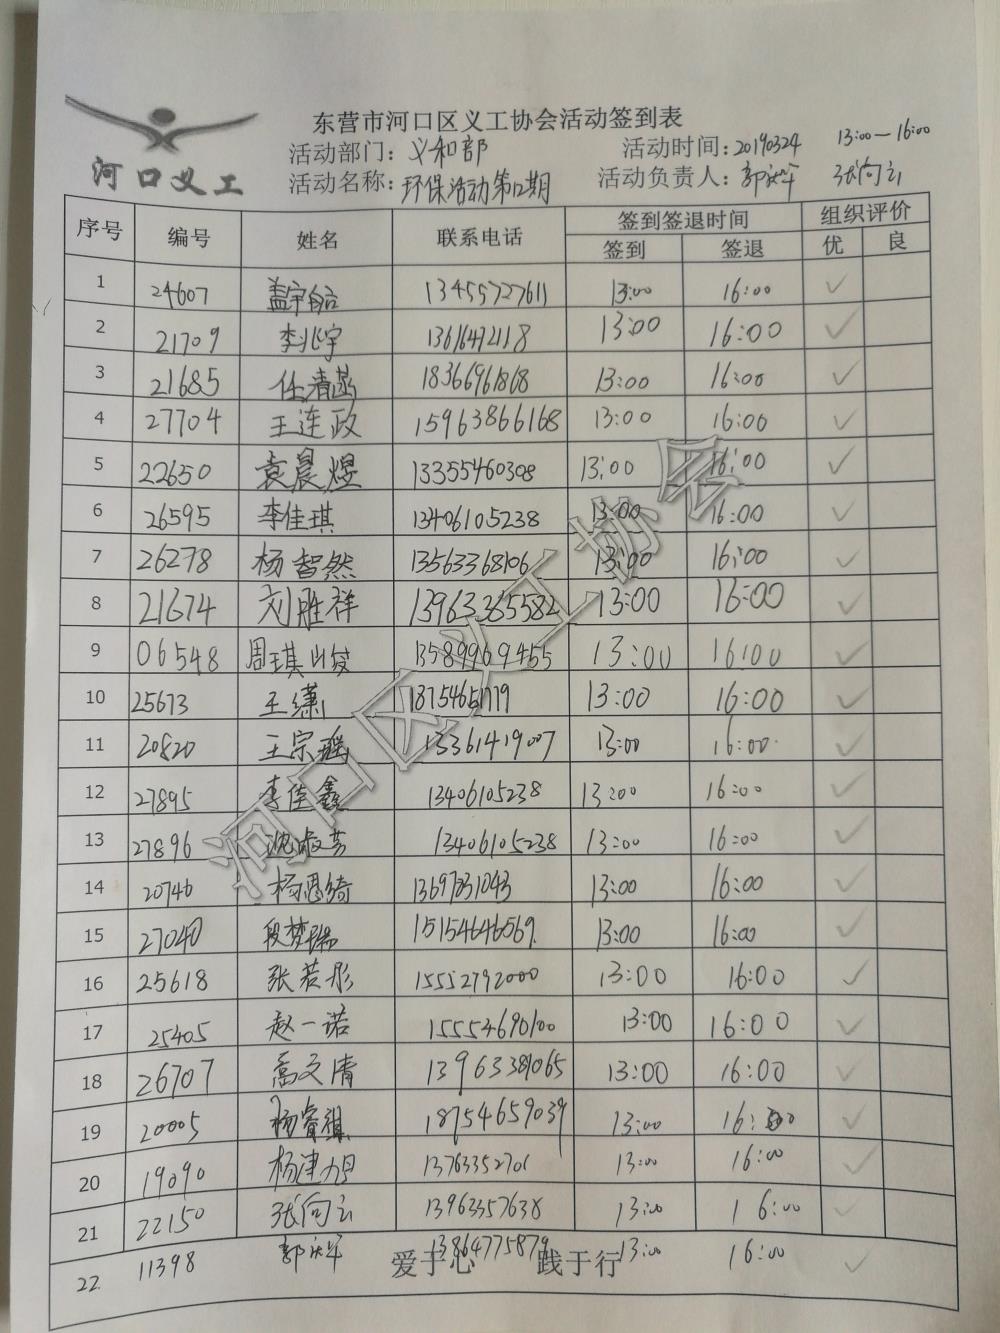 东营市河口区义工协会活动签到表
河口义工
活动部门：义和部 活动时间：20190324 13:00—16:00
活动名称：环保活动第12期 活动负责人：郭庆军 张向云
序号 编号 姓名 联系电话 签到签退时间 组织评价
签到 签退 优 良
1 24607 盖宇 13455727611 13:00 16:00 ✓
2 21709 李兆宇 13616472118 13:00 16:00 ✓
3 21685 任清菡 18366961868 13:00 16:00 ✓
4 27704 王连政 15963866168 13:00 16:00 ✓
5 22650 袁晨煜 13355460308 13:00 16:00 ✓
6 26595 李佳琪 13406105238 13:00 16:00 ✓
7 26278 杨智然 13563368106 13:00 16:00 ✓
8 21674 刘胜祥 13963365582 13:00 16:00 ✓
9 06548 周琪 13589969455 13:00 16:00 ✓
10 25673 王潇 18754651779 13:00 16:00 ✓
11 20820 王宗瑶 13361419007 13:00 16:00 ✓
12 27895 李佳鑫 13406105238 13:00 16:00 ✓
13 27896 沈淑芳 13406105238 13:00 16:00 ✓
14 20746 杨恩绮 13697831043 13:00 16:00 ✓
15 27040 段梦瑞 15154646569 13:00 16:00 ✓
16 25618 张若彤 15552792000 13:00 16:00 ✓
17 25405 赵一诺 15554690100 13:00 16:00 ✓
18 26707 高文清 13963381065 13:00 16:00 ✓
19 20005 杨睿祺 18754659039 13:00 16:00 ✓
20 19090 杨建 13763352701 13:00 16:00 ✓
21 22150 张向云 13963357638 13:00 16:00 ✓
22 11398 郭庆军 13864775879 13:00 16:00 ✓
爱于心 践于行
河口区义工协会